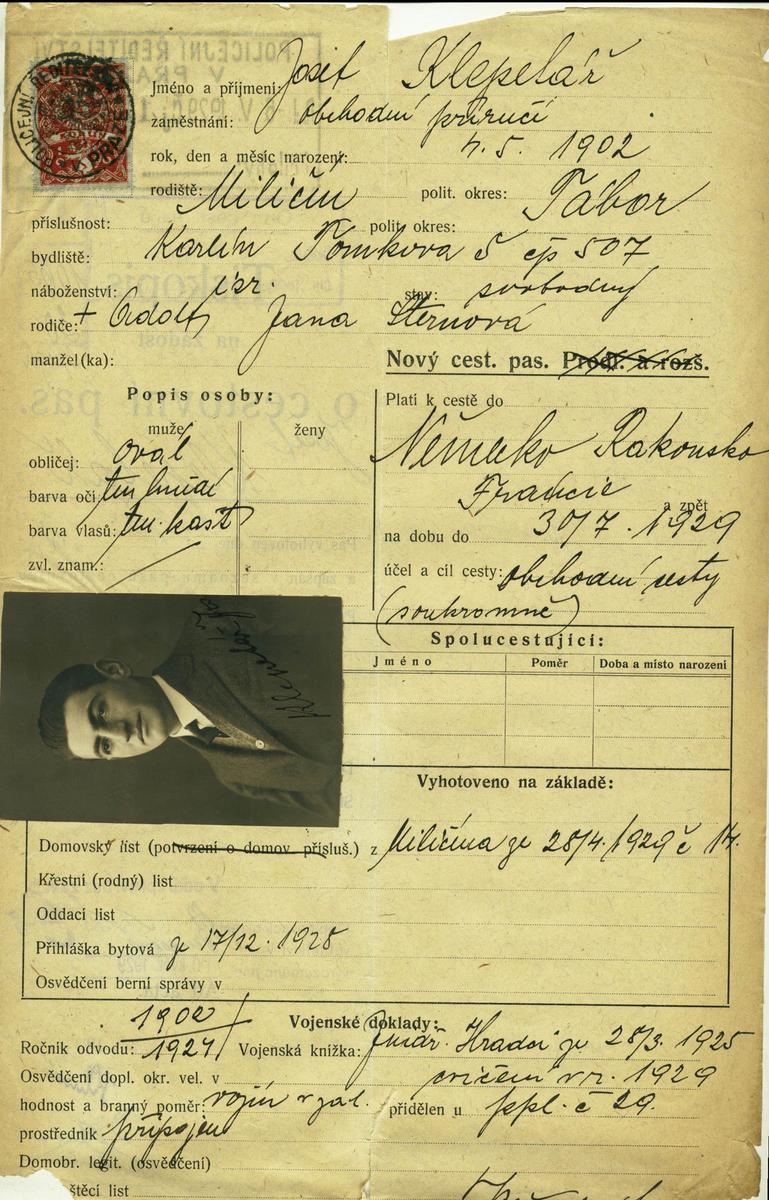 POLICEJNÍ ŘEDITELSTVÍ V PRAZE
Jméno a příjmení: Josef Klepetář
zaměstnání: obchodní příručí
rok, den a měsíc narození: 4.5. 1902
rodiště: Miličín polit. okres: Tábor
příslušnost: polit. okres:
bydliště: Karlín Tomkova 5 čp 507
náboženství: isr. stav: svobodný
rodiče: + Adolf, Jana Sternová
manžel(ka):
Nový cest. pas. Prodl. a rozš.
Popis osoby:
muže ženy
obličej: ovál
barva očí: tm hnědé
barva vlasů: tm. kašt
zvl. znam.: /
Platí k cestě do
Německo Rakousko
Francie a zpět
na dobu do 30/7. 1929
účel a cíl cesty: obchodní cesty
(soukromně)
Klepetář Jos
Spolucestující:
Jméno Poměr Doba a místo narození
Vyhotoveno na základě:
Domovský list (potvrzení o domov. přísluš.) z Miličína ze 28/4. 1929 č 14.
Křestní (rodný) list
Oddací list
Přihláška bytová ze 17/12. 1928
Osvědčení berní správy v
Vojenské doklady:
1902
Ročník odvodu: 1924 Vojenská knížka: Jindř. Hradci ze 28/3. 1925
Osvědčení dopl. okr. vel. v cvičení v r. 1929
hodnost a branný poměr: vojín v zál. přidělen u ppl. č 29.
prostředník připojen
Domobr. legit. (osvědčení)
štěcí list